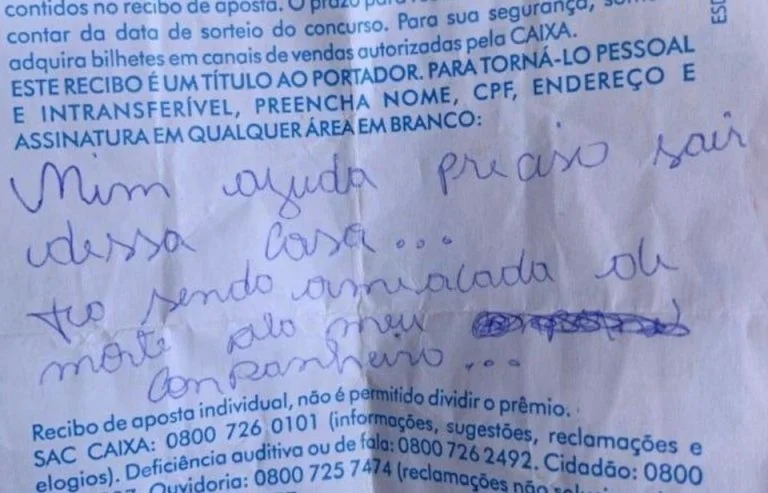 contidos no recibo de aposta. O prazo para
contar da data de sorteio do concurso. Para sua segurança, som
adquira bilhetes em canais de vendas autorizadas pela CAIXA.
ESTE RECIBO É UM TÍTULO AO PORTADOR. PARA TORNÁ-LO PESSOAL
E INTRANSFERÍVEL, PREENCHA NOME, CPF, ENDEREÇO E
ASSINATURA EM QUALQUER ÁREA EM BRANCO:
Mim ajuda preciso sair
dessa casa...
to sendo amiacada de
morte pelo meu
companheiro...
Recibo de aposta individual, não é permitido dividir o prêmio.
SAC CAIXA: 0800 726 0101 (informações, sugestões, reclamações e
elogios). Deficiência auditiva ou de fala: 0800 726 2492. Cidadão: 0800
Ouvidoria: 0800 725 7474 (reclamações não